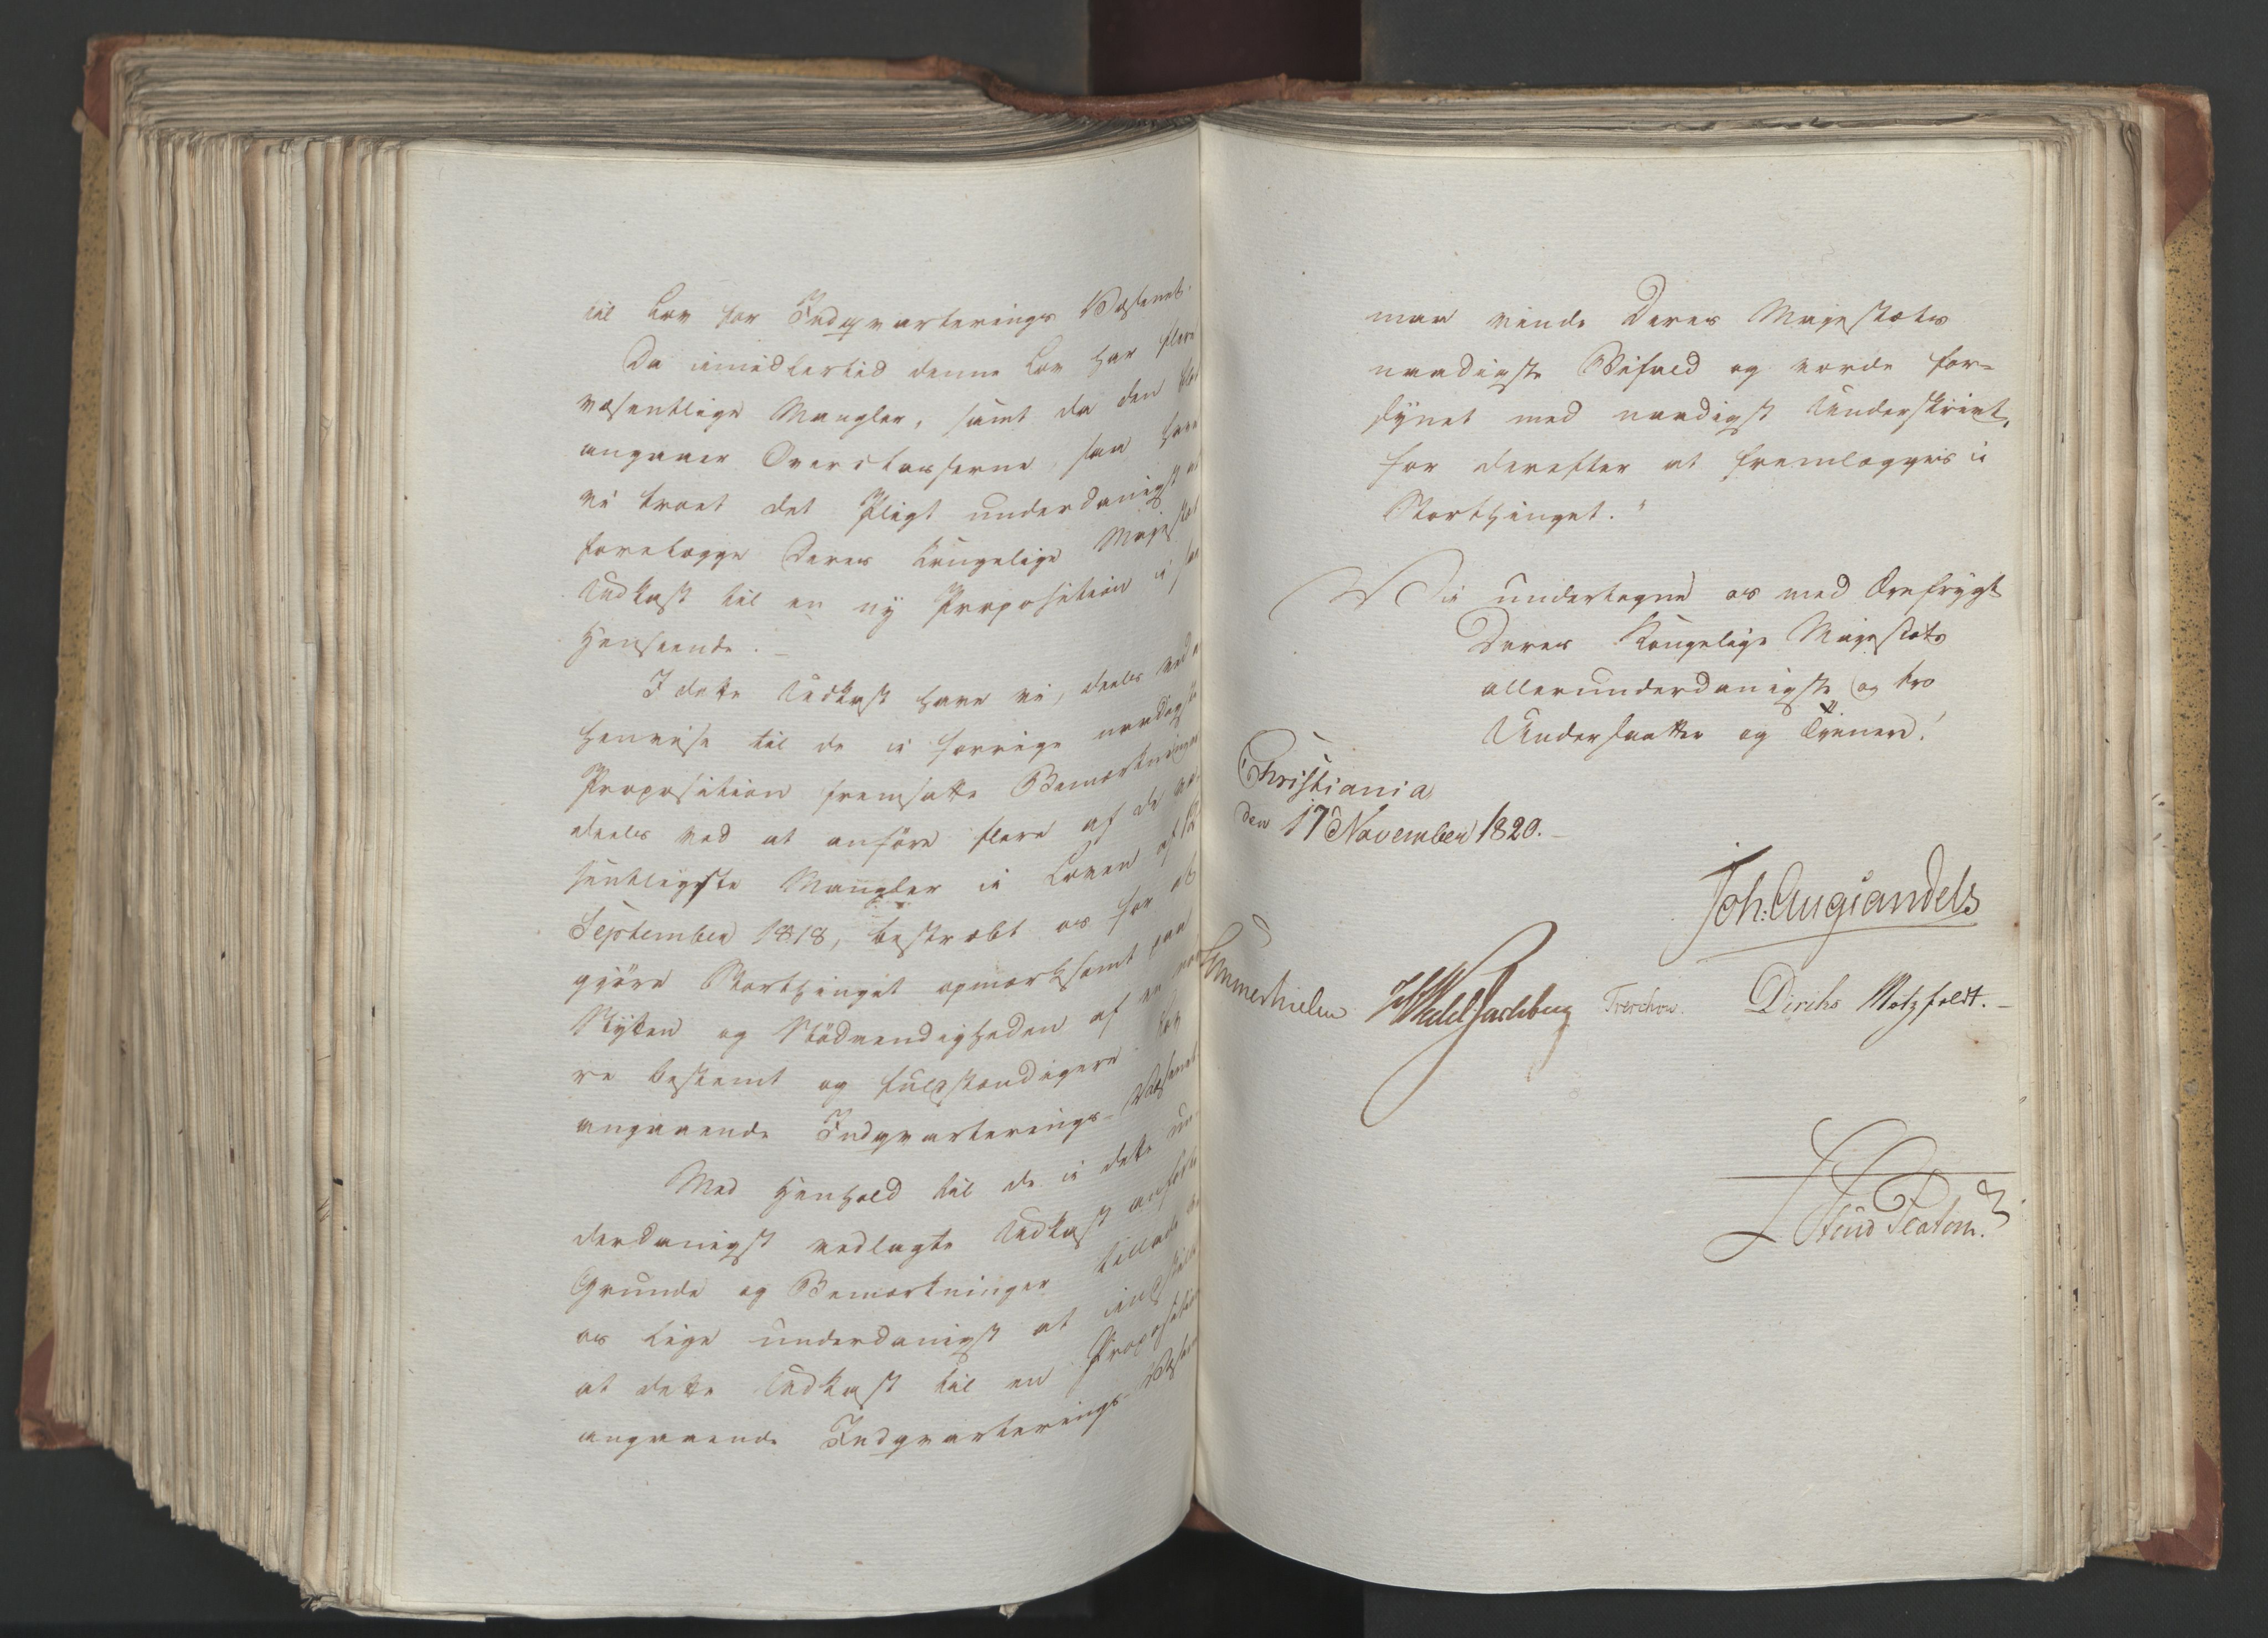 til Lov for Indqvarterings Væsenet.
Da imidlertid denne Lov har flere
væsentlige Mangler, samt da den
angaaer Overclasserne, saa have
vi troet det Pligt underdanigst at
forelægge Deres Kongelige Majestæt
Udkast til en ny Proposition i
Henseende.
I dette Udkast have vi, deels ved at
henvise til de i forrige naadigste
Proposition fremsatte Bemærkninger
deels ved at anføre flere af de væ-
sentligste Mangler i Loven af
September 1818, bestræbt os for at
gjöre Storthinget opmærksomt paa
Nytten og Nödvendigheden af en
re bestemt og fuldstændigere Lov
angaaende Indqvarterings-Væsenet
Med Henhold til de i dette un-
derdanigst vedlagte Udkast anförte
Grunde og Bemærkninger tillade
os lige underdanigst at indstille
at dette Udkast til en Proposition
angaaende Indqvarterings-Væsen
maa vinde Deres Majestæts
naadigste Bifald og vorde for-
synet med naadigst Underskrivt,
for derefter at fremlægges i
Storthinget."
Vi undertegne os med Ærefrygt
Deres Kongelige Majestæts
allerunderdanigste og tro
Undersaatter og Tienere!
Christiania
den 17 November 1820.
Joh: Aug: Sandels
Sommerhielm JHWedel Jarlsberg Treschow. Diriks Motzfeldt.